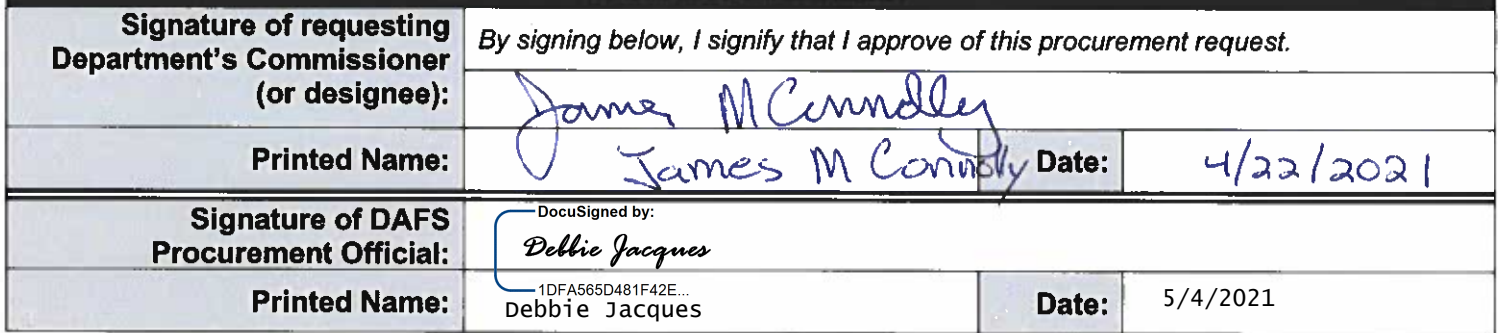 Signature of requesting
Department's Commissioner
(or designee):
By signing below, I signify that I approve of this procurement request.
James M Connolly
Printed Name:
James M Connolly
Date:
4/22/2021
Signature of DAFS
Procurement Official:
DocuSigned by:
Debbie Jacques
1DFA565D481F42E...
Printed Name:
Debbie Jacques
Date:
5/4/2021